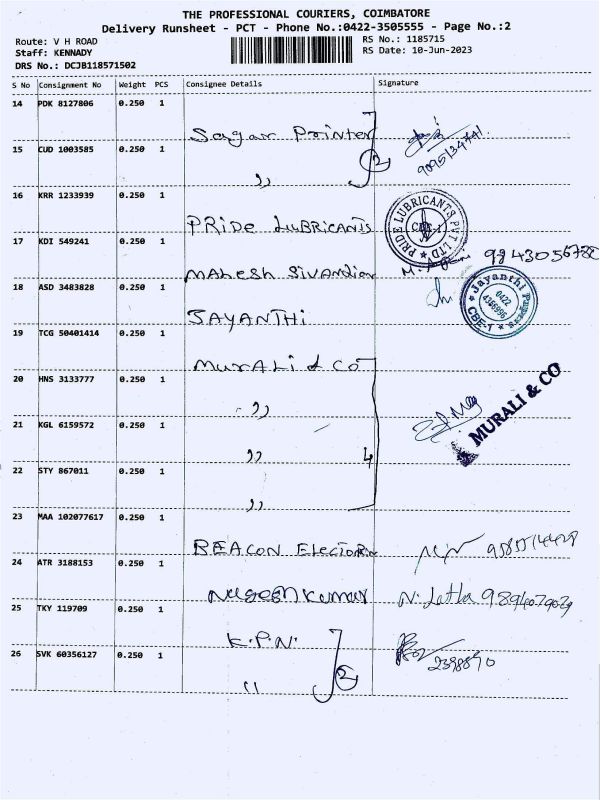 THE PROFESSIONAL COURIERS, COIMBATORE
Delivery Runsheet - PCT - Phone No.:0422-3505555 - Page No.:2
Route: V H ROAD
Staff: KENNADY
DRS No.: DCJB118571502
RS No.: 1185715
RS Date: 10-Jun-2023
S No Consignment No Weight PCS Consignee Details Signature
14 PDK 8127806 0.250 1
Sagar Printer
15 CUD 1003585 0.250 1
,, 2
9095134741
16 KRR 1233939 0.250 1
PRIDE LUBRICANTS
PRIDE LUBRICANTS PVT LTD CBE-1
17 KDI 549241 0.250 1
MAHESH SIVANDIAN
18 ASD 3483828 0.250 1
JAYANTHI
Jayanthi Papers 0422 4366996 CBE-1
19 TCG 50401414 0.250 1
MURALI & CO
20 HNS 3133777 0.250 1
,,
MURALI & CO
21 KGL 6159572 0.250 1
,, 4
22 STY 867011 0.250 1
,,
23 MAA 102077617 0.250 1
BEACON
24 ATR 3188153 0.250 1
NageshKumar N. Latha
25 TKY 119709 0.250 1
K.P.N.
26 SVK 60356127 0.250 1
,, 2 2398890